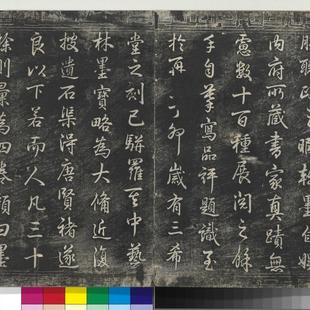 聽政之暇翰墨自娛
內府所藏書家真蹟無
慮數十百種展閱之餘
手自筆寫品評題識至
於再丁卯歲有三希
堂之刻已駢羅中藝
林墨寶略為大備近復
披遺石渠得唐賢褚遂
良以下若而人凡三十
餘則彙為四卷顏曰墨